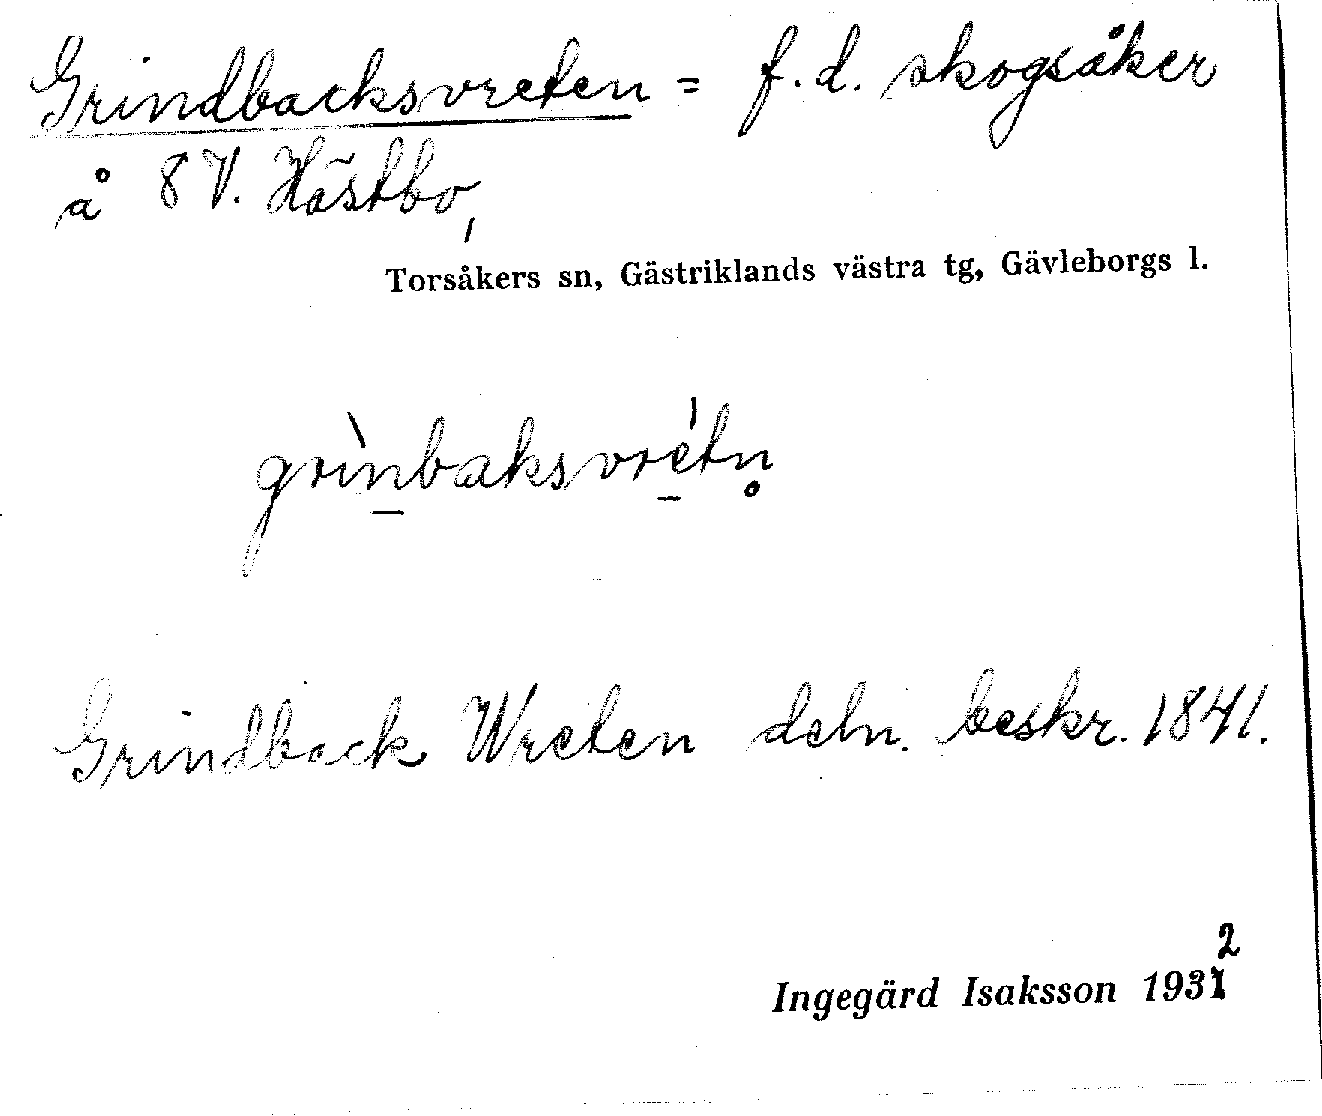 Grindbacksvreten = f.d. skogsåker
å 8 V. Hästbo,
Torsåkers sn, Gästriklands västra tg, Gävleborgs l.
grìn̲baksvré̲tn̥
Grindback Wreten deln. beskr. 1841.
2
Ingegärd Isaksson 1931